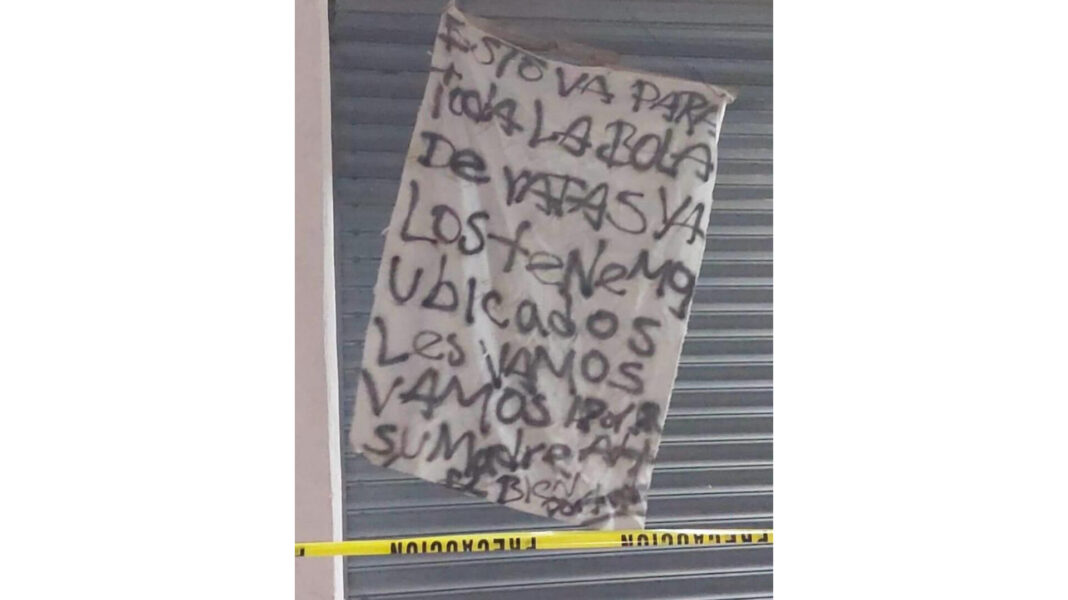 ESTO VA PARA
TodA LA BOLA
De RATAS YA
LOS teNeMOS
Ubicados
Les VAMOS
VAMOS
SU MAdre
EL BIEN
PRECAUCION
PRECAUCION